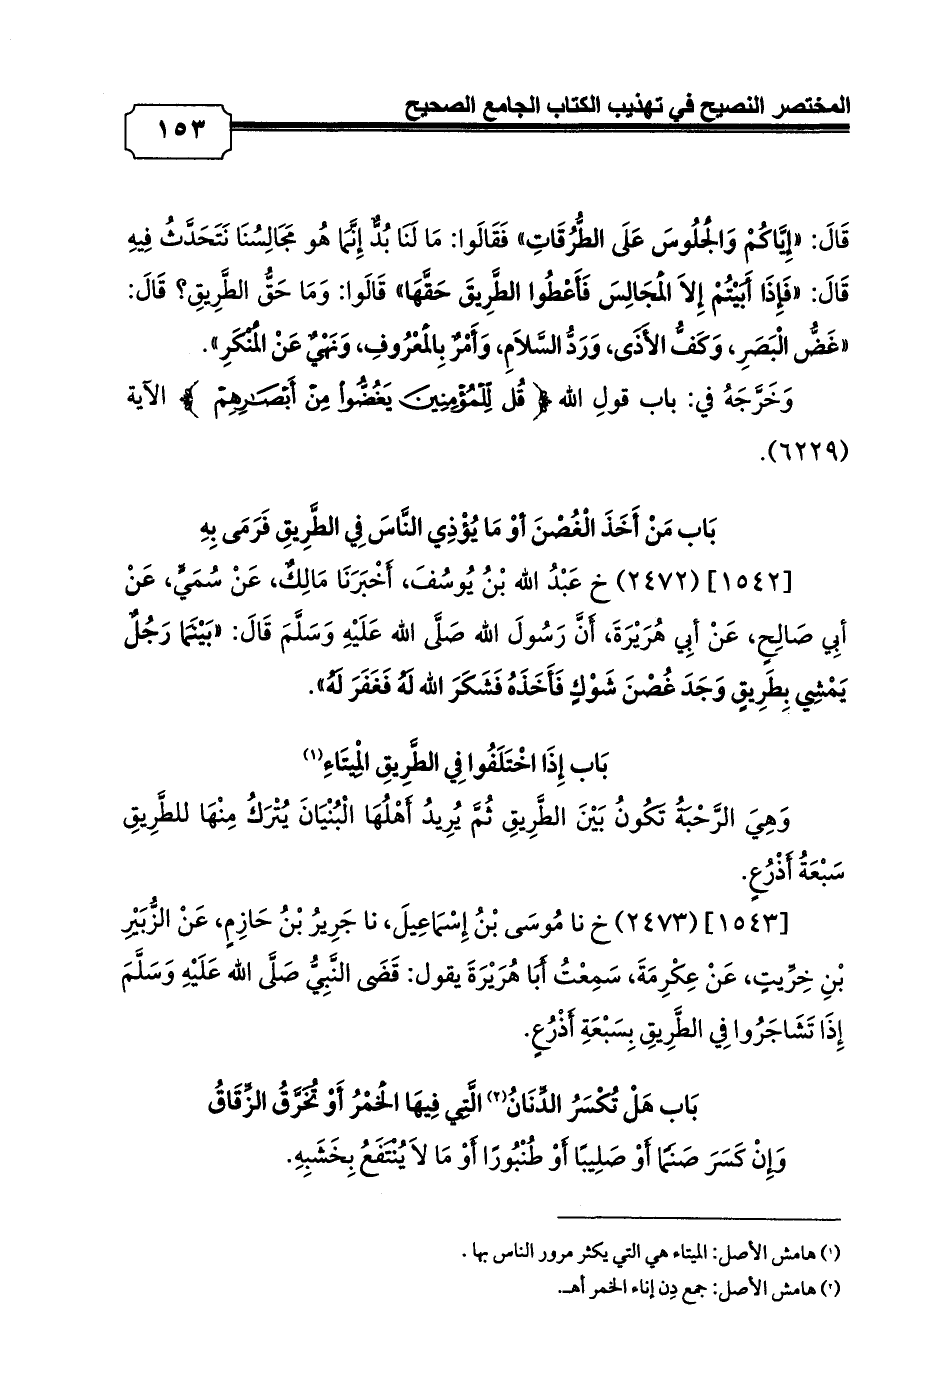 المختصر النصيح في تهذيب الكتاب الجامع الصحيح
١٥٣
قَالَ: «إِيَّاكُمْ وَالْجُلُوسَ عَلَى الطُّرُقَاتِ» فَقَالُوا: مَا لَنَا بُدٌّ إِنَّمَا هُو مَجَالِسُنَا نَتَحَدَّثُ فِيهِ
قَالَ: «فَإِذَا أَبَيْتُمْ إِلاَ الْمَجَالِسَ فَأَعْطُوا الطَّرِيقَ حَقَّهَا» قَالُوا: وَمَا حَقُّ الطَّرِيقِ؟ قَالَ:
«غَضُّ الْبَصَرِ، وَكَفُّ الأَذَى، وَرَدُّ السَّلاَمِ، وَأَمْرٌ بِالْمَعْرُوفِ، وَنَهْيٌ عَنْ الْمُنْكَرِ».
وَخَرَّجَهُ في: باب قولِ الله ﴿قُل لِّلْمُؤْمِنِينَ يَغُضُّواْ مِنْ أَبْصَـٰرِهِمْ﴾ الآية
(٦٢٢٩).
بَاب مَنْ أَخَذَ الْغُصْنَ أَوْ مَا يُؤْذِي النَّاسَ فِي الطَّرِيقِ فَرَمَى بِهِ
[١٥٤٢] (٢٤٧٢) خ عَبْدُ الله بْنُ يُوسُفَ، أَخْبَرَنَا مَالِكٌ، عَنْ سُمَيٍّ، عَنْ
أبي صَالِحٍ، عَنْ أبي هُرَيْرَةَ، أَنَّ رَسُولَ الله صَلَّى الله عَلَيْهِ وَسَلَّمَ قَالَ: «بَيْنَمَا رَجُلٌ
يَمْشِي بِطَرِيقٍ وَجَدَ غُصْنَ شَوْكٍ فَأَخَذَهُ فَشَكَرَ الله لَهُ فَغَفَرَ لَهُ».
بَاب إِذَا اخْتَلَفُوا فِي الطَّرِيقِ الْمِيتَاءِ(١)
وَهِيَ الرَّحْبَةُ تَكُونُ بَيْنَ الطَّرِيقِ ثُمَّ يُرِيدُ أَهْلُهَا الْبُنْيَانَ يُتْرَكُ مِنْهَا للطَّرِيقِ
سَبْعَةُ أَذْرُعٍ.
[١٥٤٣] (٢٤٧٣) خ نا مُوسَى بْنُ إِسْمَاعِيلَ، نا جَرِيرُ بْنُ حَازِمٍ، عَنْ الزُّبَيْرِ
بْنِ خِرِّيتٍ، عَنْ عِكْرِمَةَ، سَمِعْتُ أَبَا هُرَيْرَةَ يقول: قَضَى النَّبِيُّ صَلَّى الله عَلَيْهِ وَسَلَّمَ
إِذَا تَشَاجَرُوا فِي الطَّرِيقِ بِسَبْعَةِ أَذْرُعٍ.
بَاب هَلْ تُكْسَرُ الدِّنَانُ(٢) الَّتِي فِيهَا الْخَمْرُ أَوْ تُخَرَّقُ الزِّقَاقُ
وَإِنْ كَسَرَ صَنَمًا أَوْ صَلِيبًا أَوْ طُنْبُورًا أَوْ مَا لاَ يُنْتَفَعُ بِخَشَبِهِ.
(١) هامش الأصل: الميتاء هي التي يكثر مرور الناس بها .
(٢) هامش الأصل: جمع دِن إناء الخمر أهـ.